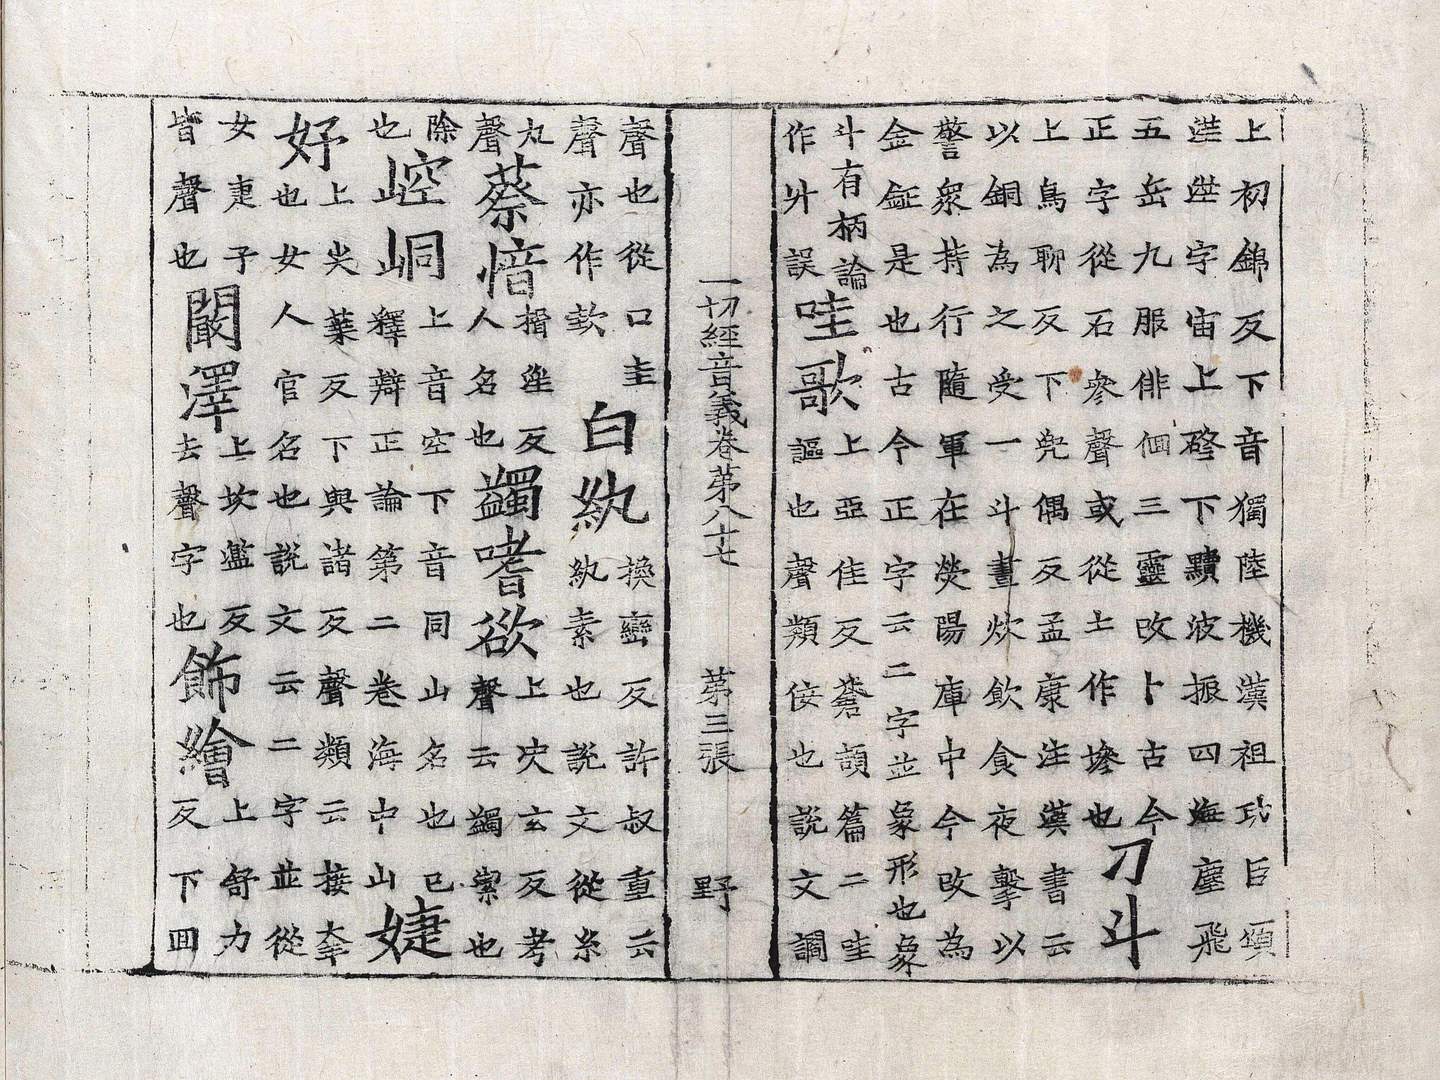 上初錦反下音獨陸機漢祖功臣頌
字宙上硶下黷波振四海塵飛
五岳九服徘徊三靈改卜古今
正字從石參聲或從土作墋也
刀斗
上鳥聊反下兜偶反孟康注漢書云
以銅為之受一斗晝炊飲食夜擊以
警衆持行隨軍在滎陽庫中今改為
金鉦是也古今正字云二字並象形也象
斗有柄論
作廾誤
哇歌
上亞佳反蒼頡篇二哇
謳也聲類佞也説文讇
一切經音義卷第八十七 第三張 野
聲也從口圭
聲亦作欬
白紈
換巒反許叔重云
紈素也説文從糸
丸
聲
蔡愔
揖淫反
人名也
蠲嗜欲
上決玄反考
聲云蠲潔也
除
也
崆峒
上音空下音同山名也已
釋辯正論第二卷海中山
婕
妤
上尖葉反下與諸反聲類云接幸
也女人官名也説文云二字並從
女疌子
皆聲也
闞澤
上坎濫反
去聲字也
飾繪
上舒力
反下回